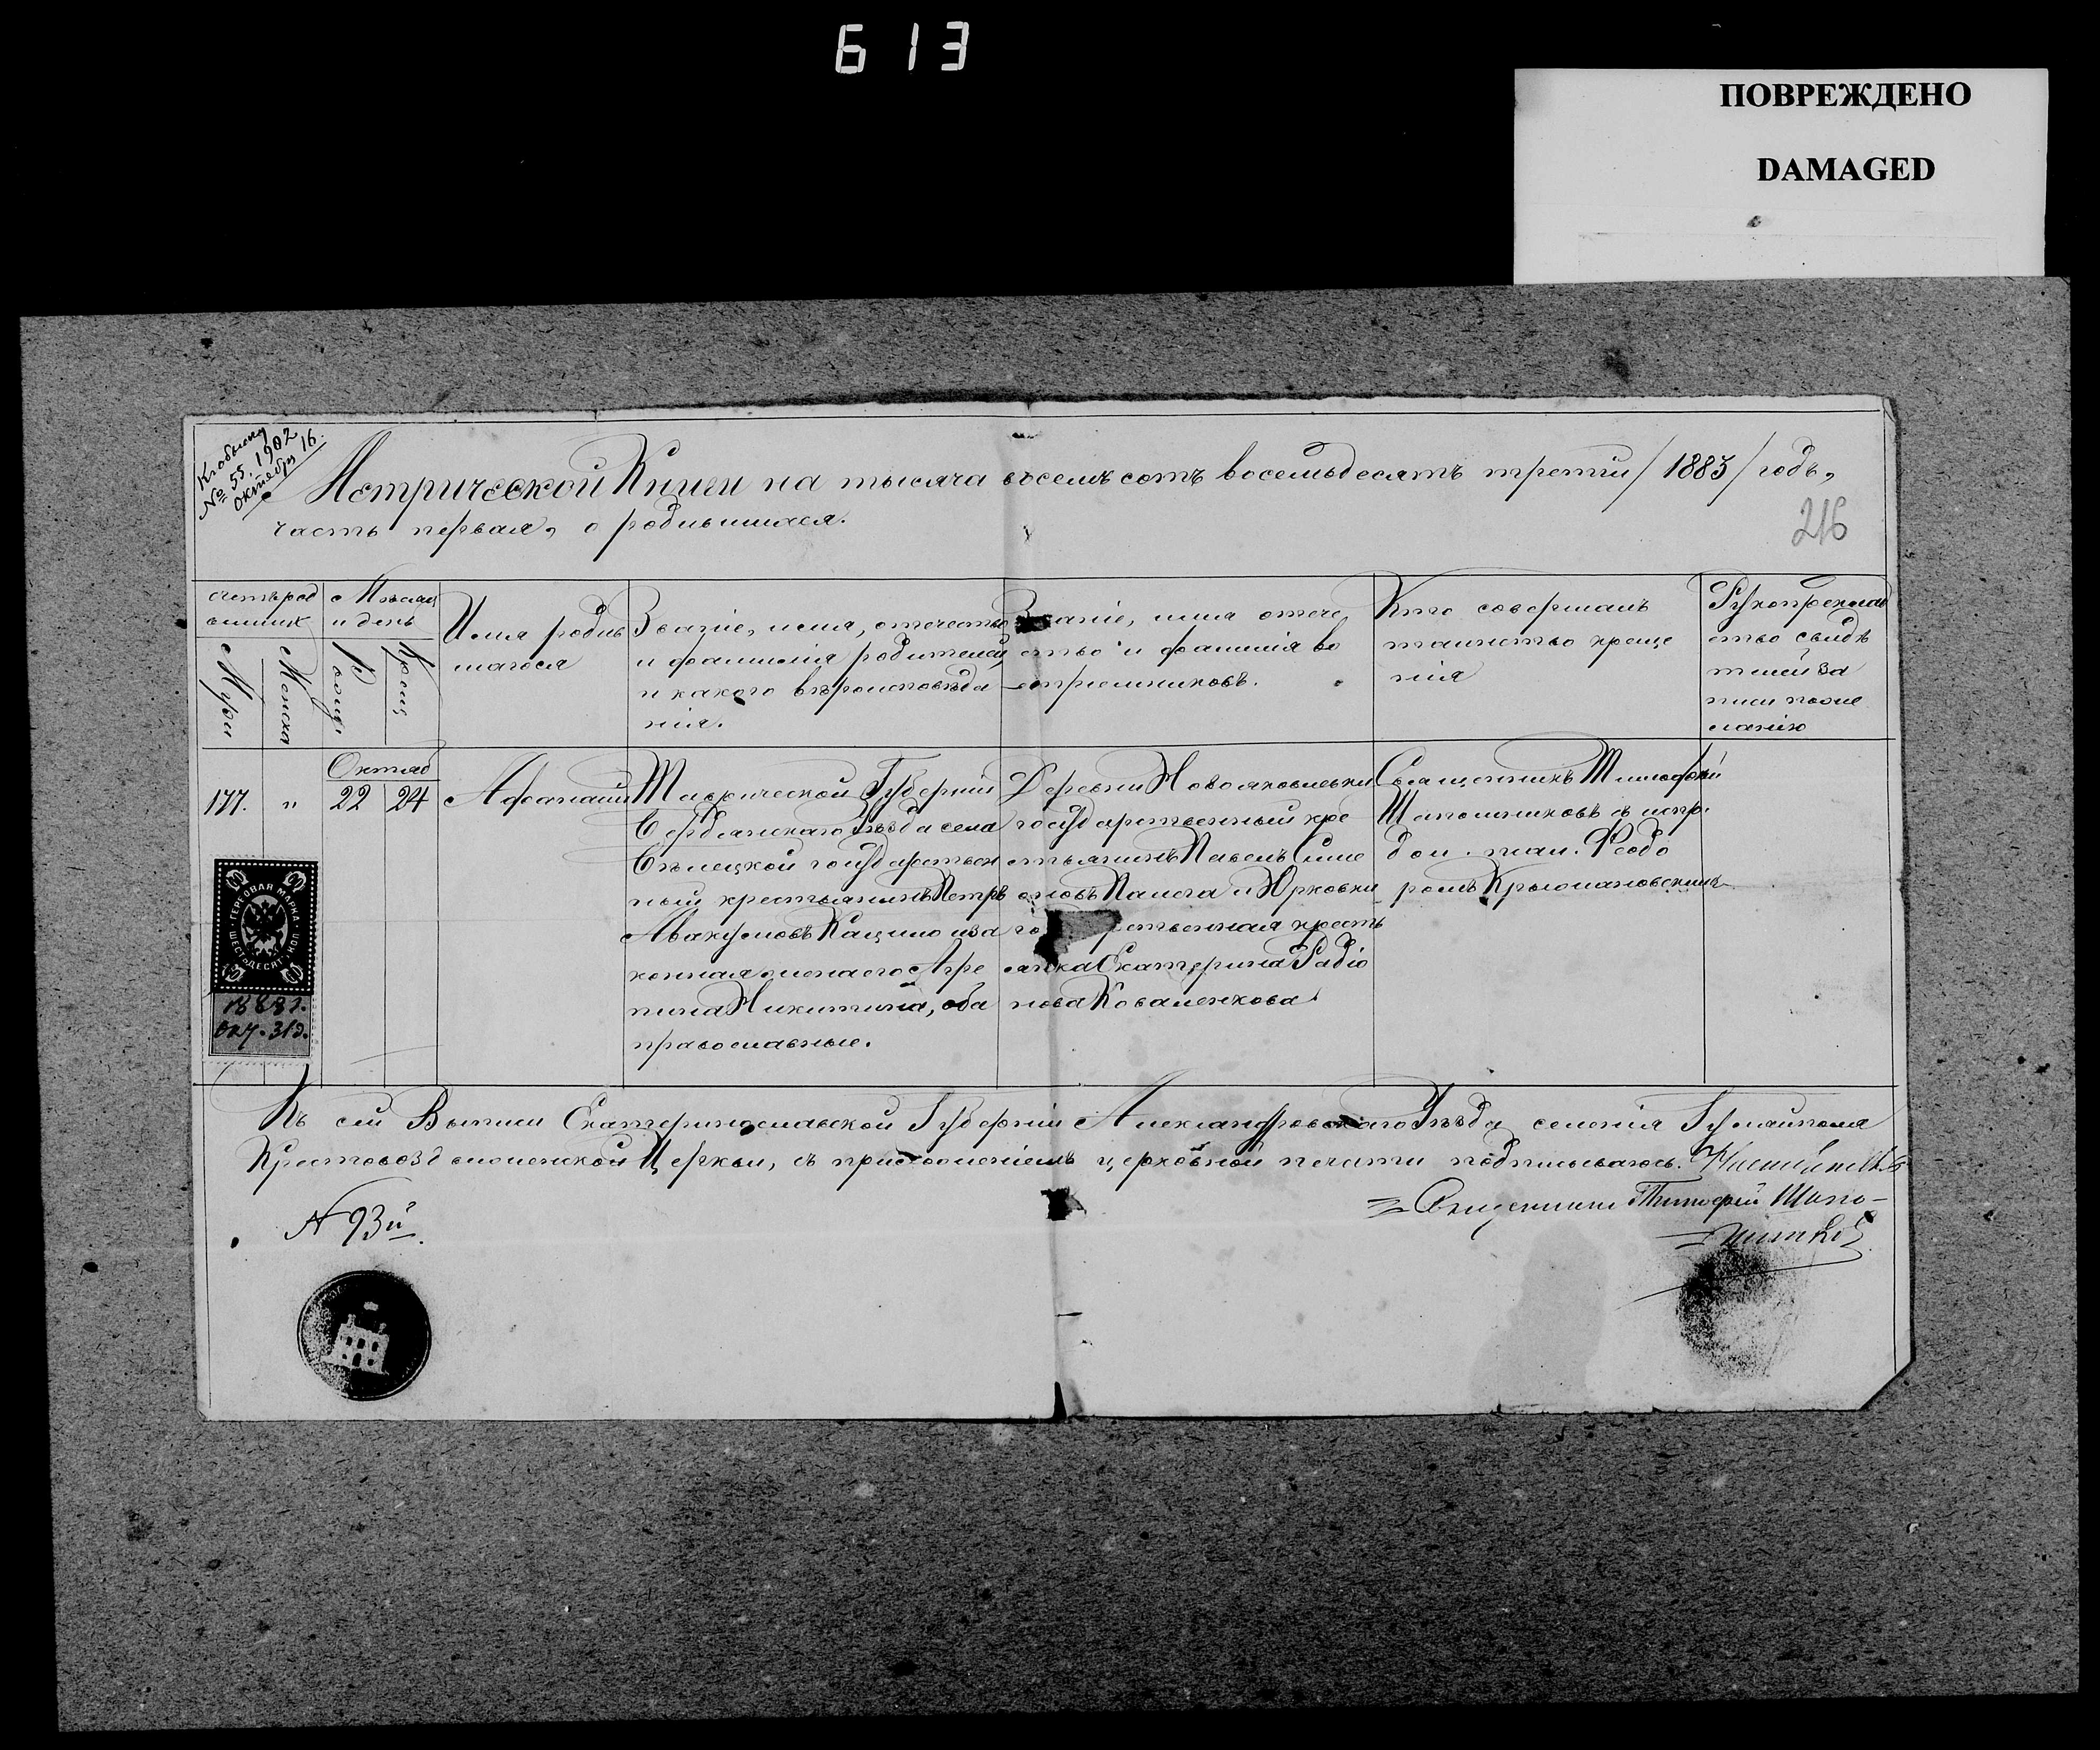 613
ПОВРЕЖДЕНО
DAMAGED
№ 55. 1902
Октября 16.
Метрической Книги на тысяча восемь сотъ восемьдесятъ третій /1883/ годъ,
часть первая, о родившихся.
216
Счетъ род
Мѣсяцъ
и день
Мужи
Женска
Рожд.
Крещ
Имя родив
шагося
Званіе, имя, отчество
и фамилія родителей
и какого вѣроисповѣда
нія.
Званіе, имя отече
ство и фамилія во
спріемниковъ.
Кто совершалъ
таинство креще
нія
Рукоприклад
ство свидѣ
телей за
писи по же
ланію
177.
"
Октяб
22
24
Афанасій
Таврической Губерніи
Бердянскаго Уѣзда села
государствен
ный крестьянинъ Петръ
Авакумовъ Кацило и за
конная жена его Агре
пина Никитина, оба
православные.
Деревни Новояковлевки
государственный кре
стьянинъ Павелъ Симе
оновъ Палега и Юрковки
го рственная кресть
янка Екатерина Радіо
нова Коваленкова
Священникъ Тимофей
Шапошниковъ съ испр.
дол. псал. Феодо
ромъ Крыжановскимъ
ГЕРБОВАЯ МАРКА
ШЕСТЬДЕСЯТ КОП
1888г.
Окт. 31д.
Къ сей Выписи Екатеринославской Губерніи Александровскаго Уѣзда селенія Гуляйполя
Крестовоздвиженской Церкви, съ приложеніемъ церковной печати подписываюсь.
№ 93й
Священникъ Тимофей Шапо-
шниковъ